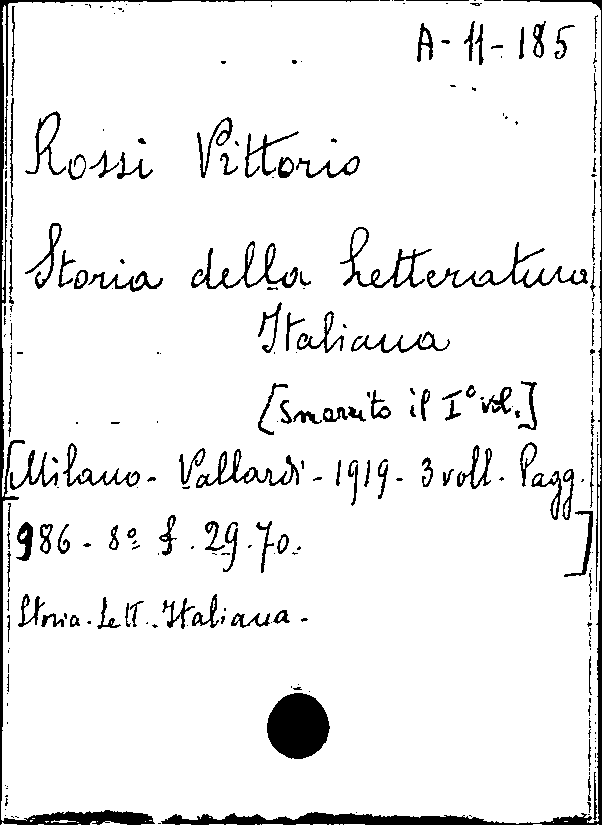 A-11-185
Rossi Vittorio
Storia della Letteratura
Italiana
[Smarrito il I° vol.]
[Milano - Vallardi - 1919 - 3 voll. Pagg.
986 - 8° £. 29.70. ]
Storia - Lett. Italiana -